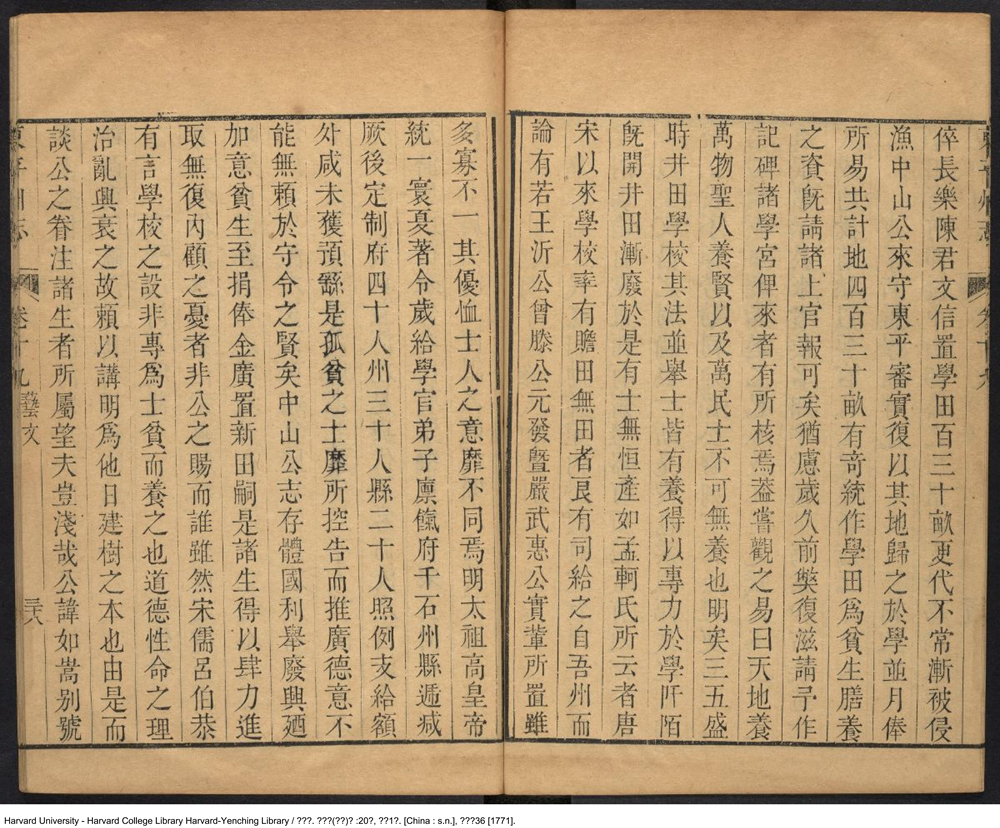 倅長樂陳君文信置學田百三十畝更代不常漸被侵
漁中山公來守東平審實復以其地歸之於學並月俸
所易共計地四百三十畝有奇統作學田爲貧生膳養
之資旣請諸上官報可矣猶慮歲久前獘復滋請予作
記碑諸學宮俾來者有所核焉蓋嘗觀之易曰天地養
萬物聖人養賢以及萬民士不可無養也明矣三五盛
時井田學校其法並舉士皆有養得以專力於學阡陌
旣開井田漸廢於是有士無恒產如孟軻氏所云者唐
宋以來學校率有贍田無田者良有司給之自吾州而
論有若王沂公曾滕公元發曁嚴武惠公實輩所置雖
多寡不一其優恤士人之意靡不同焉明太祖高皇帝
統一寰夏著令歲給學官弟子廪餼府千石州縣遞减
厥後定制府四十人州三十人縣二十人照例支給額
外咸未獲預繇是孤貧之士靡所控告而推廣德意不
能無賴於守令之賢矣中山公志存體國利舉廢興廼
加意貧生至捐俸金廣置新田嗣是諸生得以肆力進
取無復內顧之憂者非公之賜而誰雖然宋儒呂伯恭
有言學校之設非專爲士貧而養之也道德性命之理
治亂興衰之故賴以講明爲他日建樹之本也由是而
談公之眷注諸生者所屬望夫豈淺哉公諱如嵩别號
東平州志 卷十九 藝文 三六
Harvard University - Harvard College Library Harvard-Yenching Library / ???. ???(??)? :20?, ??1?. [China : s.n.], ???36 [1771].